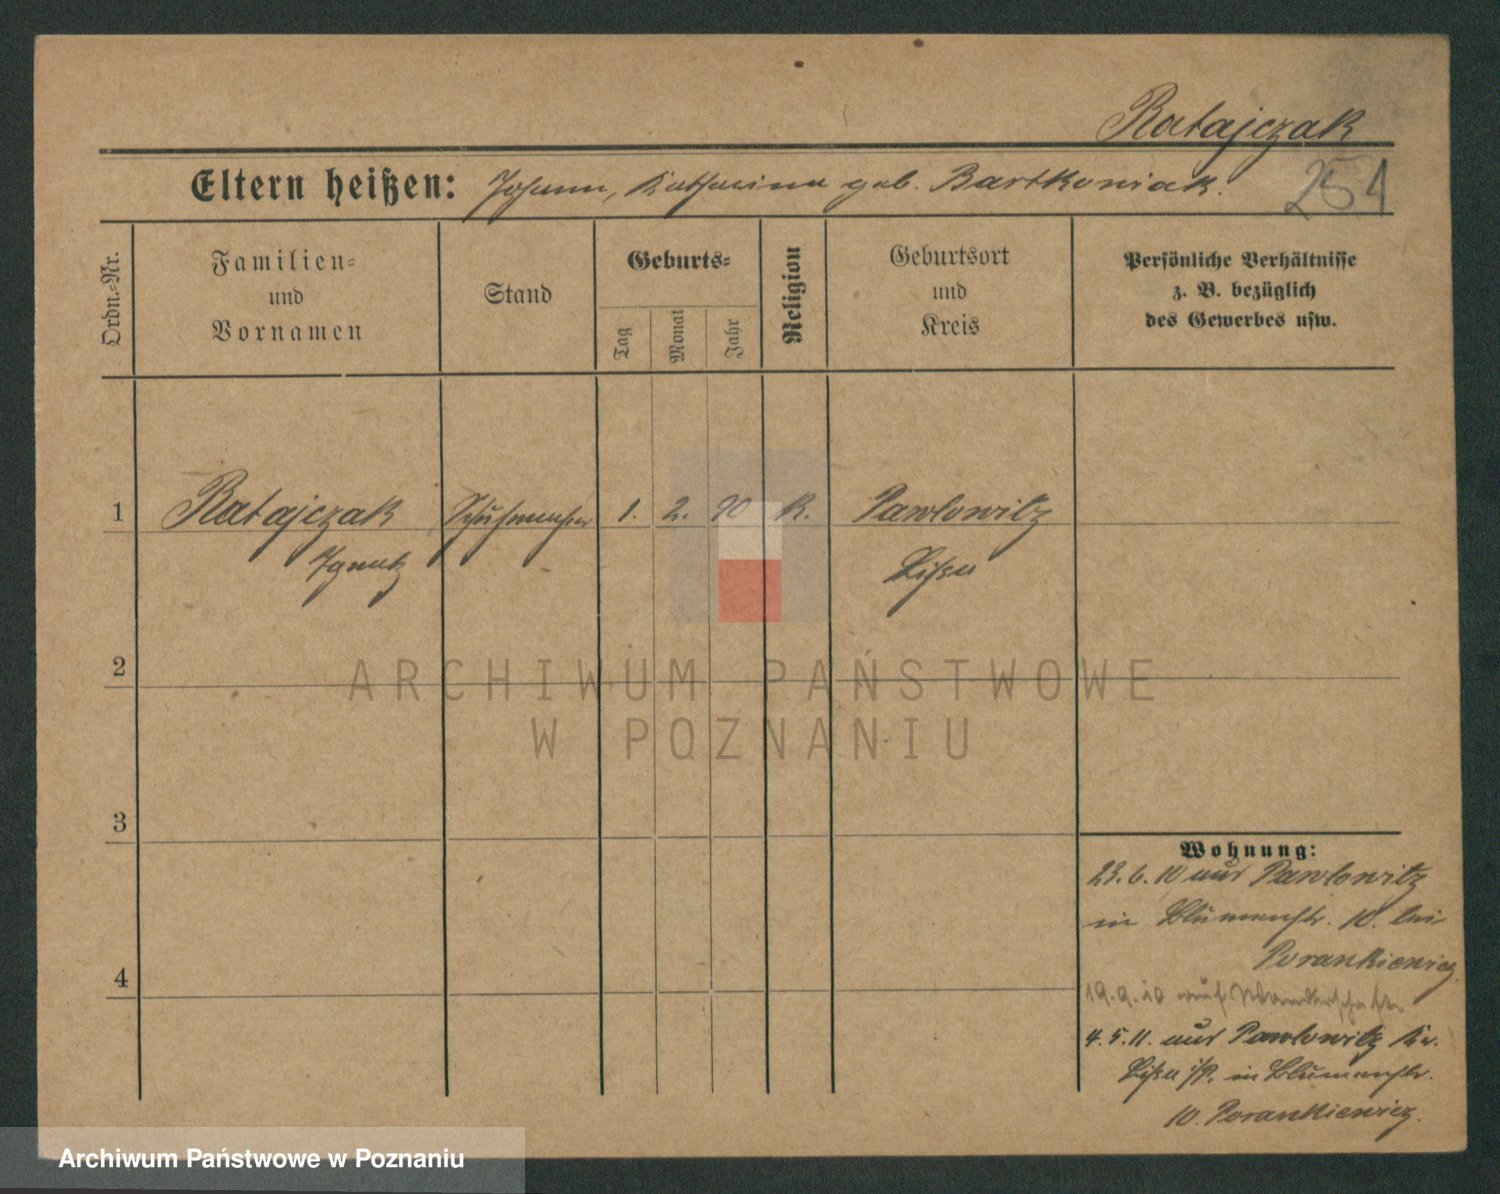 Ratajczak
Eltern heißen: Johann, Katharina geb. Bartkowiak.
251
Ordn.-Nr.
Familien-
und
Vornamen
Stand
Geburts-
Tag
Monat
Jahr
Religion
Geburtsort
und
Kreis
Persönliche Verhältnisse
z. B. bezüglich
des Gewerbes usw.
1 Ratajczak Schuhmacher 1. 2. 90 K. Pawlowitz
Ignatz Lissa
2
3
4
Wohnung:
23.6.10 aus Pawlowitz
in Blumenstr. 10. bei
Porankiewicz
19.9.10 auf Wanderschaft
4.5.11. aus Pawlowitz Kr.
Lissa i/P. in Blumenstr.
10. Porankiewicz.
ARCHIWUM PAŃSTWOWE
W POZNANIU
Archiwum Państwowe w Poznaniu